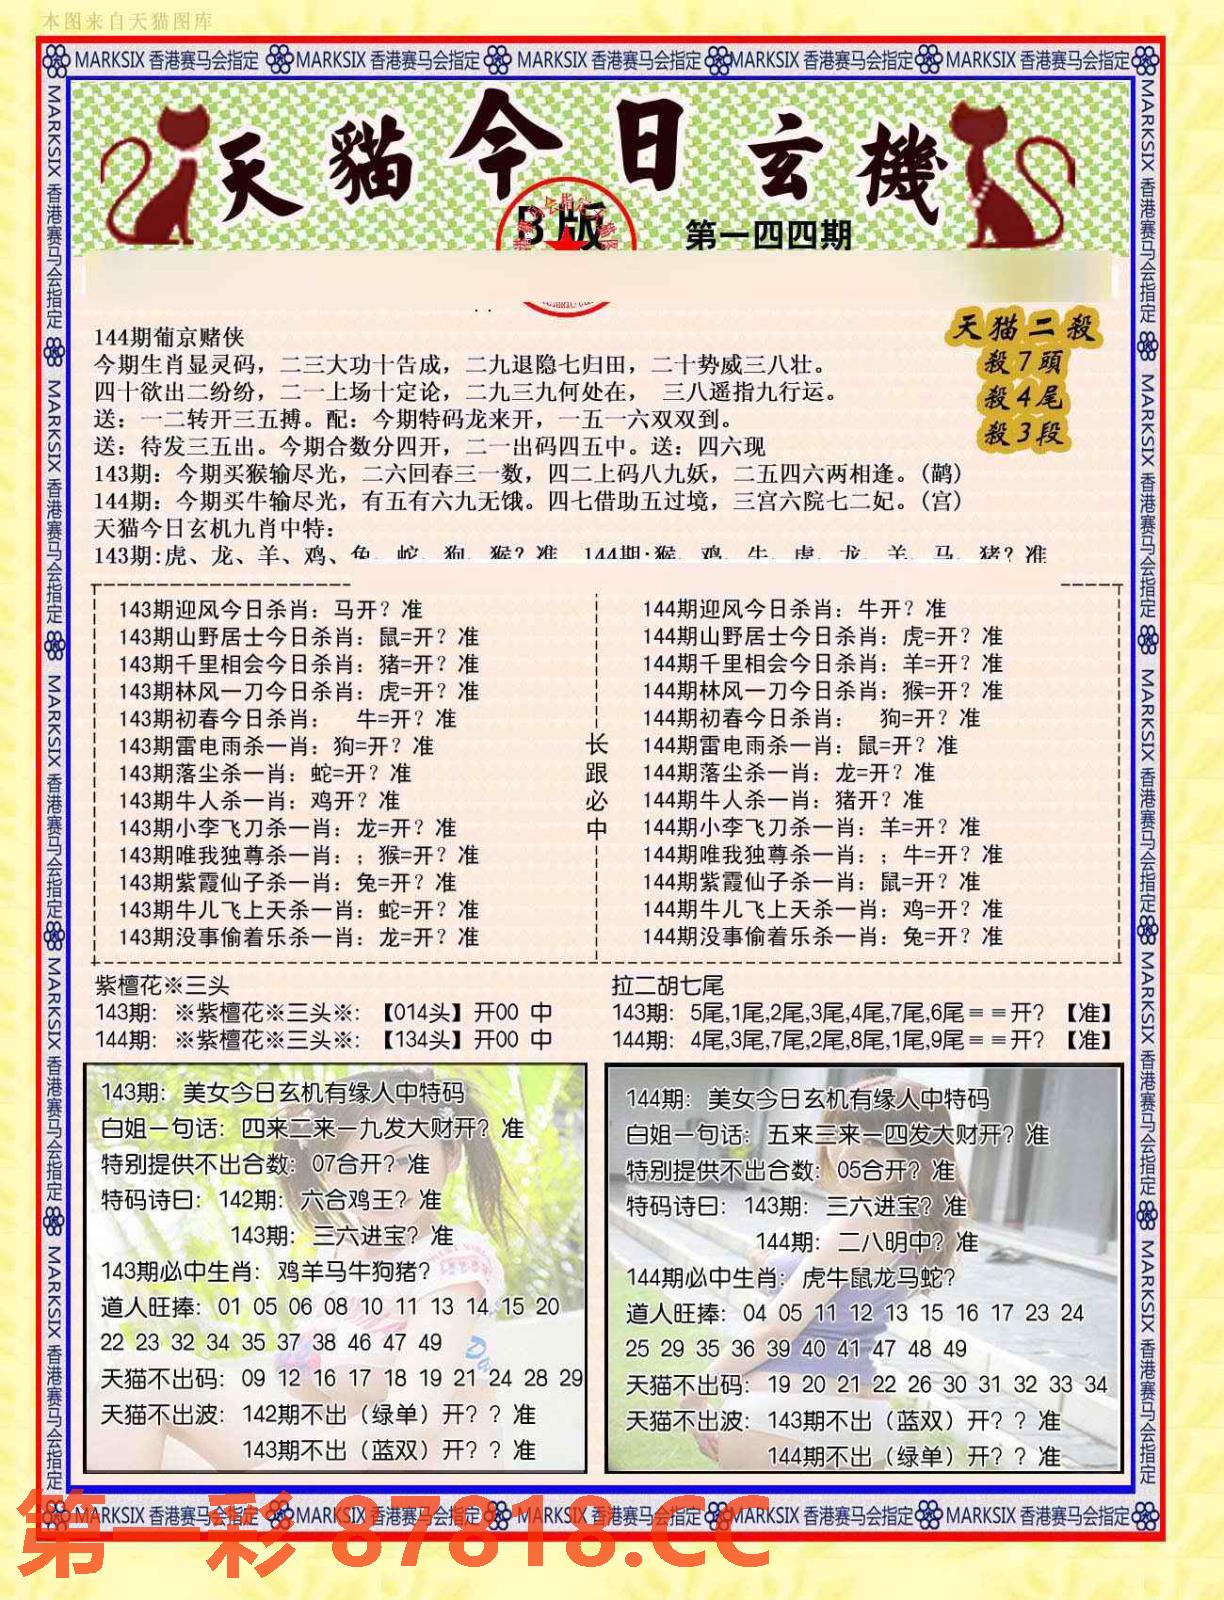 本图来自天猫图库
MARKSIX 香港赛马会指定 MARKSIX 香港赛马会指定 MARKSIX 香港赛马会指定 MARKSIX 香港赛马会指定 MARKSIX 香港赛马会指定
天貓今日玄機
B版
第一四四期
天猫二殺
殺7頭
殺4尾
殺3段
144期葡京赌侠
今期生肖显灵码，二三大功十告成，二九退隐七归田，二十势威三八壮。
四十欲出二纷纷，二一上场十定论，二九三九何处在， 三八遥指九行运。
送：一二转开三五搏。配：今期特码龙来开，一五一六双双到。
送：待发三五出。今期合数分四开，二一出码四五中。送：四六现
143期：今期买猴输尽光，二六回春三一数，四二上码八九妖，二五四六两相逢。（鹋）
144期：今期买牛输尽光，有五有六九无饿。四七借助五过境，三宫六院七二妃。（宫）
天猫今日玄机九肖中特：
143期:虎、龙、羊、鸡、兔、蛇、狗、猴？准 144期:猴、鸡、牛、虎、龙、羊、马、猪？准
143期迎风今日杀肖：马开？准
143期山野居士今日杀肖：鼠=开？准
143期千里相会今日杀肖：猪=开？准
143期林风一刀今日杀肖：虎=开？准
143期初春今日杀肖： 牛=开？准
143期雷电雨杀一肖：狗=开？准
143期落尘杀一肖：蛇=开？准
143期牛人杀一肖：鸡开？准
143期小李飞刀杀一肖：龙=开？准
143期唯我独尊杀一肖：；猴=开？准
143期紫霞仙子杀一肖：兔=开？准
143期牛儿飞上天杀一肖：蛇=开？准
143期没事偷着乐杀一肖：龙=开？准
长跟必中
144期迎风今日杀肖：牛开？准
144期山野居士今日杀肖：虎=开？准
144期千里相会今日杀肖：羊=开？准
144期林风一刀今日杀肖：猴=开？准
144期初春今日杀肖： 狗=开？准
144期雷电雨杀一肖：鼠=开？准
144期落尘杀一肖：龙=开？准
144期牛人杀一肖：猪开？准
144期小李飞刀杀一肖：羊=开？准
144期唯我独尊杀一肖：；牛=开？准
144期紫霞仙子杀一肖：鼠=开？准
144期牛儿飞上天杀一肖：鸡=开？准
144期没事偷着乐杀一肖：兔=开？准
紫檀花※三头
143期：※紫檀花※三头※：【014头】开00 中
144期：※紫檀花※三头※：【134头】开00 中
拉二胡七尾
143期：5尾,1尾,2尾,3尾,4尾,7尾,6尾＝＝开？【准】
144期：4尾,3尾,7尾,2尾,8尾,1尾,9尾＝＝开？【准】
143期：美女今日玄机有缘人中特码
白姐一句话：四来二来一九发大财开？准
特别提供不出合数：07合开？准
特码诗曰：142期：六合鸡王？准
143期：三六进宝？准
143期必中生肖：鸡羊马牛狗猪？
道人旺捧：01 05 06 08 10 11 13 14 15 20
22 23 32 34 35 37 38 46 47 49
天猫不出码：09 12 16 17 18 19 21 24 28 29
天猫不出波：142期不出（绿单）开？？准
143期不出（蓝双）开？？准
144期：美女今日玄机有缘人中特码
白姐一句话：五来三来一四发大财开？准
特别提供不出合数：05合开？准
特码诗曰：143期：三六进宝？准
144期：二八明中？准
144期必中生肖：虎牛鼠龙马蛇？
道人旺捧：04 05 11 12 13 15 16 17 23 24
25 29 35 36 39 40 41 47 48 49
天猫不出码：19 20 21 22 26 30 31 32 33 34
天猫不出波：143期不出（蓝双）开？？准
144期不出（绿单）开？？准
MARKSIX 香港赛马会指定 MARKSIX 香港赛马会指定 MARKSIX 香港赛马会指定 MARKSIX 香港赛马会指定 MARKSIX 香港赛马会指定
MARKSIX 香港赛马会指定 MARKSIX 香港赛马会指定 MARKSIX 香港赛马会指定 MARKSIX 香港赛马会指定 MARKSIX 香港赛马会指定
MARKSIX 香港赛马会指定 MARKSIX 香港赛马会指定 MARKSIX 香港赛马会指定 MARKSIX 香港赛马会指定 MARKSIX 香港赛马会指定
第一彩 87818.CC